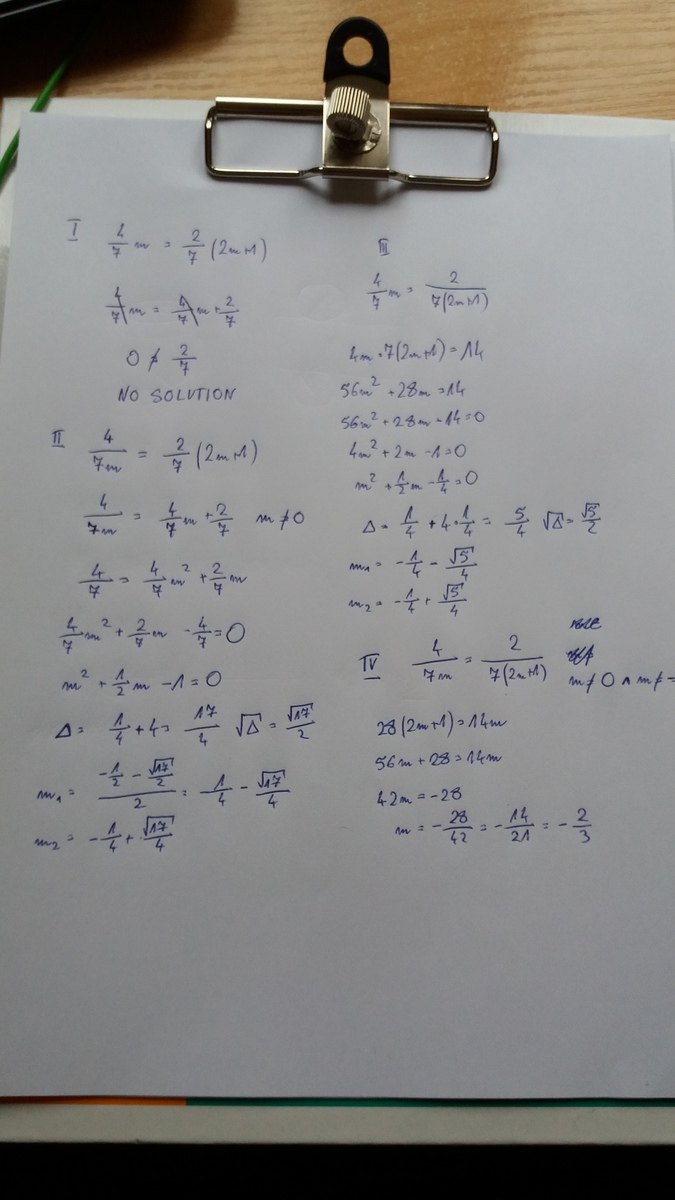 I
4/7 m = 2/7 (2m+1)
4/7 m = 4/7 m + 2/7
0 ≠ 2/7
NO SOLUTION
II
4/7m = 2/7 (2m+1)
4/7m = 4/7 m + 2/7 m ≠ 0
4/7 = 4/7 m² + 2/7 m
4/7 m² + 2/7 m - 4/7 = 0
m² + 1/2 m - 1 = 0
Δ = 1/4 + 4 = 17/4 √Δ = √17/2
m₁ = (-1/2 - √17/2)/2 = -1/4 - √17/4
m₂ = -1/4 + √17/4
III
4/7 m = 2/7(2m+1)
4m · 7(2m+1) = 14
56m² + 28m = 14
56m² + 28m - 14 = 0
4m² + 2m - 1 = 0
m² + 1/2 m - 1/4 = 0
Δ = 1/4 + 4 · 1/4 = 5/4 √Δ = √5/2
m₁ = -1/4 - √5/4
m₂ = -1/4 + √5/4
IV
4/7m = 2/7(2m+1)
m ≠ 0 ∧ m ≠ -
28(2m+1) = 14m
56m + 28 = 14m
42m = -28
m = -28/42 = -14/21 = -2/3